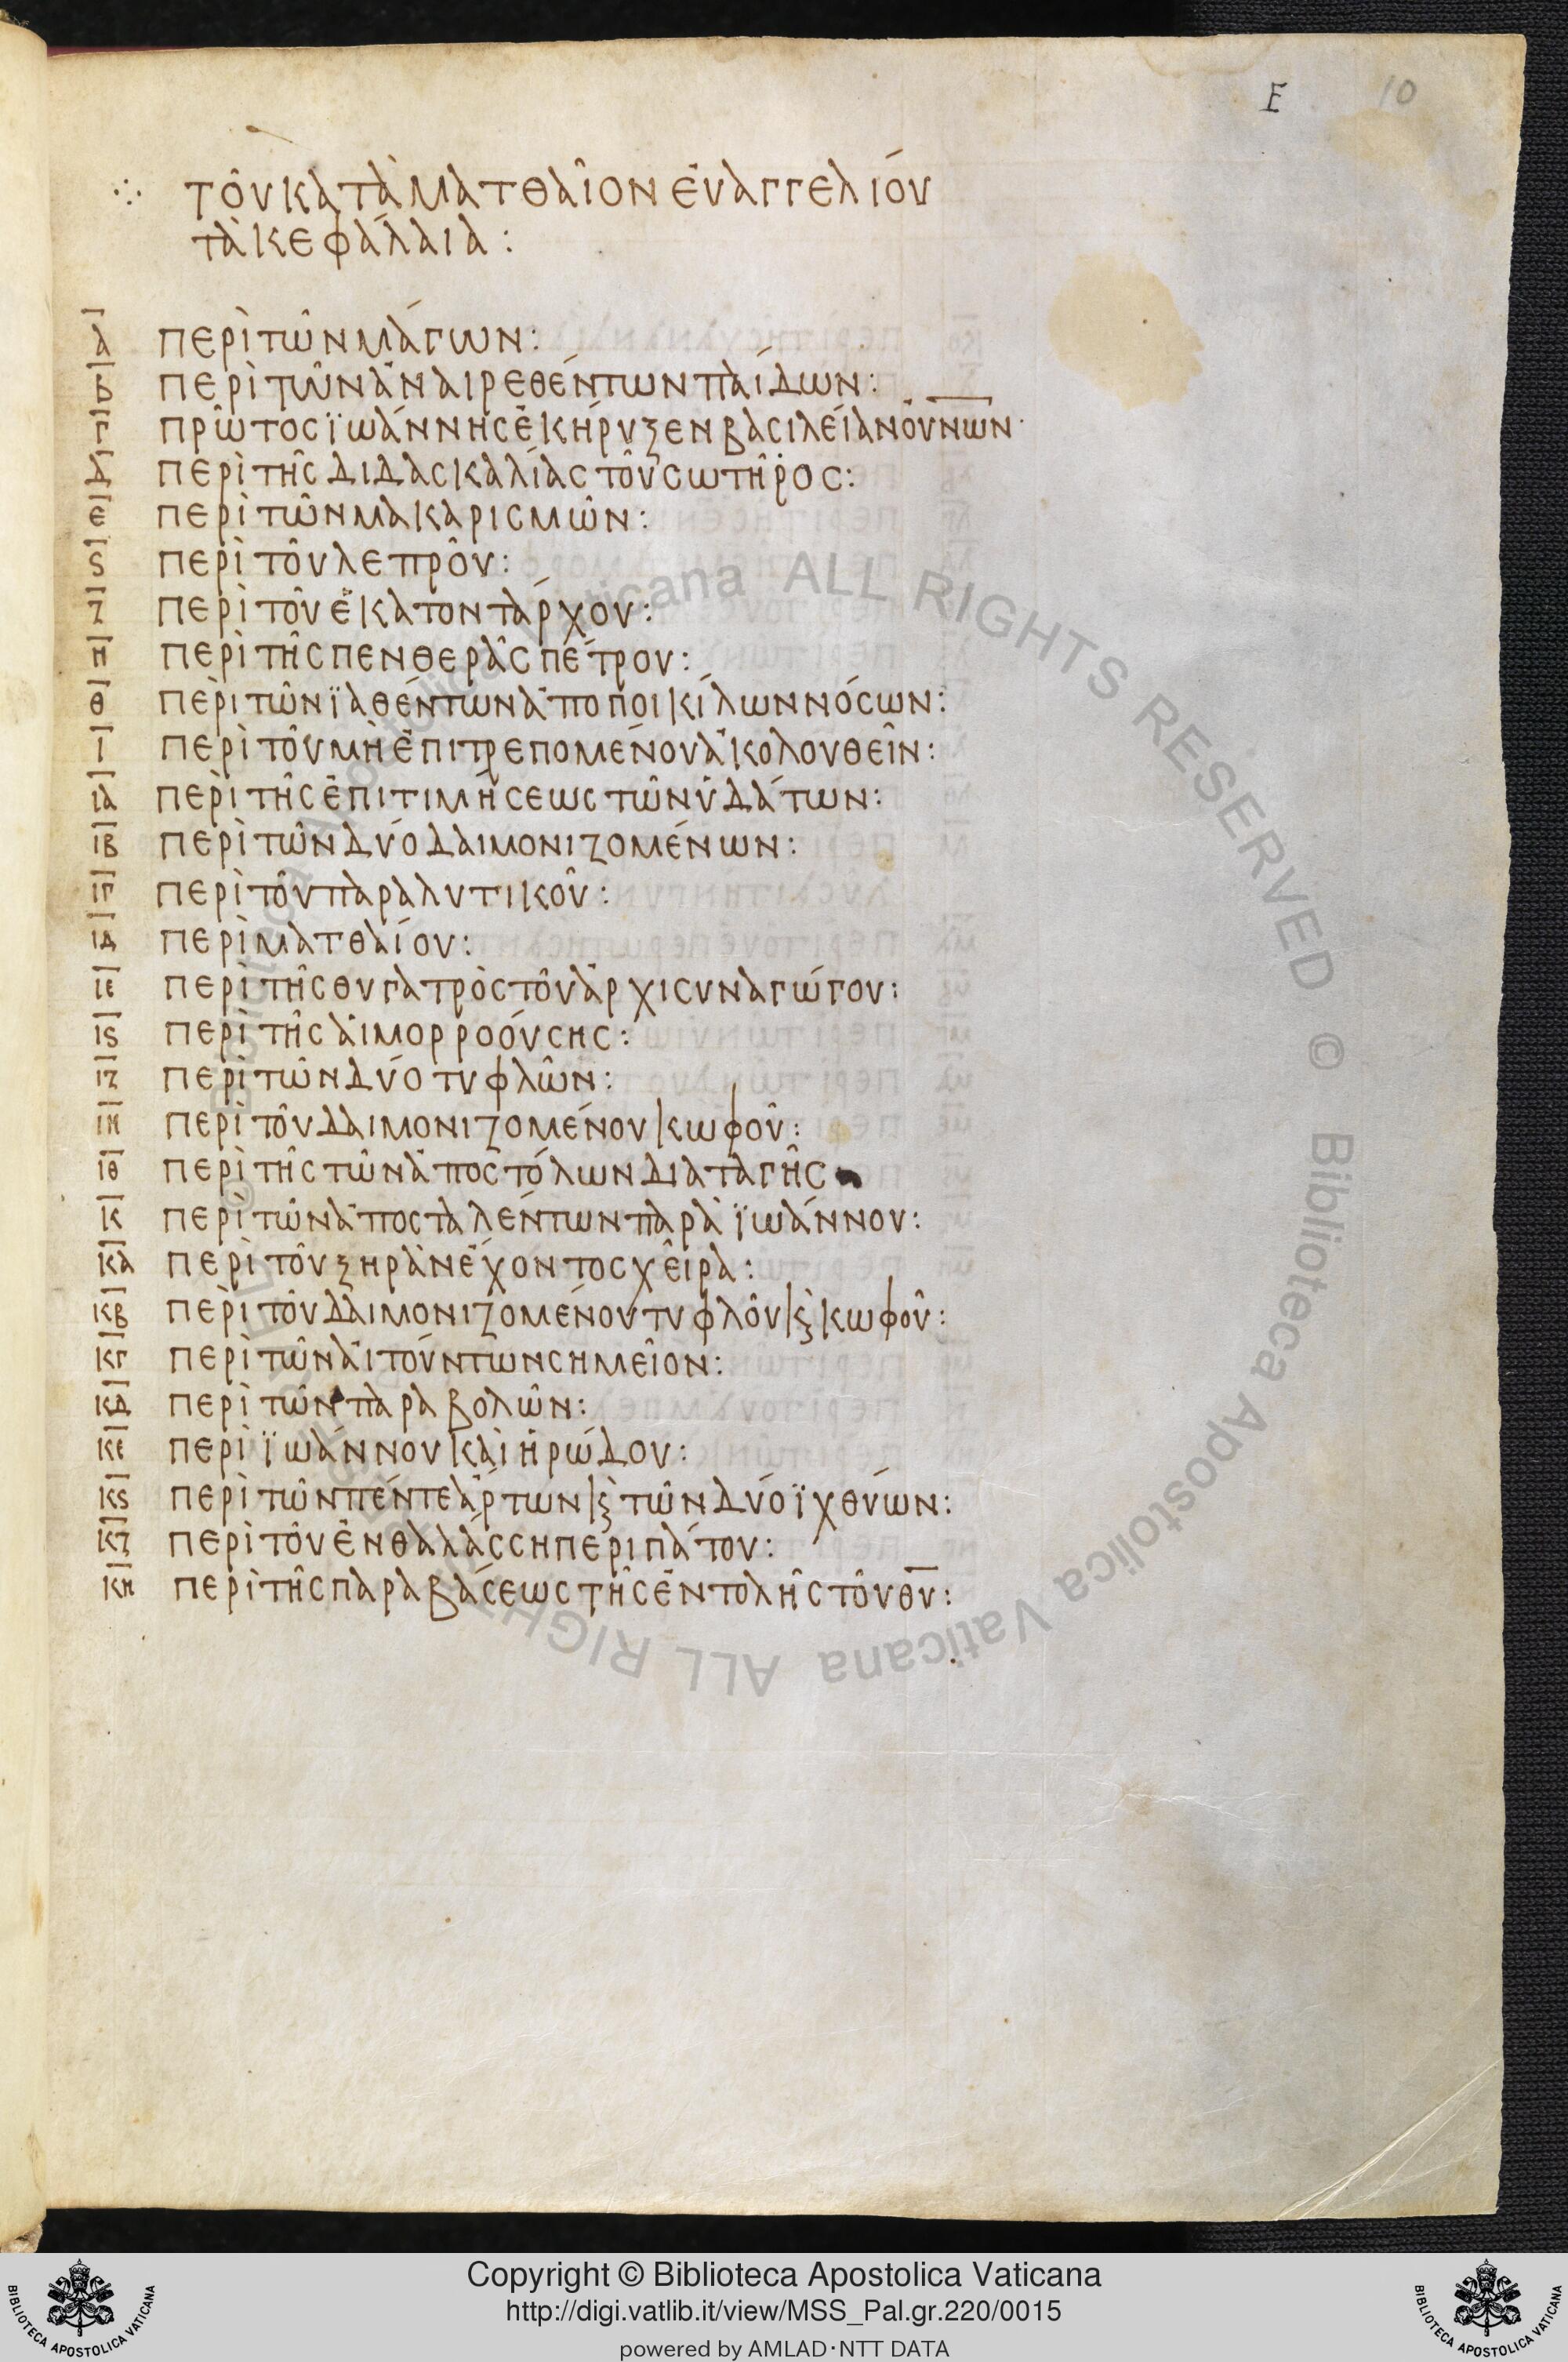 Ε 10
∴ τοῦ κατὰ ματθαῖον ἐυαγγελίου
τὰ κεφάλαια :
α περὶ τῶν μάγων :
β περὶ τῶν ἀναιρεθέντων παίδων :
γ πρῶτος ϊωάννης ἐκήρυξεν βασιλείαν οὐνων·
δ περὶ τῆς διδασκαλίας τοῦ σωτῆρος :
ε περὶ τῶν μακαρισμῶν :
ς περὶ τοῦ λεπροῦ :
ζ περὶ τοῦ ἑκατοντάρχου :
η περὶ τῆς πενθερᾶς πέτρου :
θ περὶ τῶν ϊαθέντων ἀπο ποικίλων νόσων :
ι περὶ τοῦ μὴ ἐπιτρεπομένου ἀκολουθεῖν :
ια περὶ τῆς ἐπιτιμήσεως τῶν ὑδάτων :
ιβ περὶ τῶν δύο δαιμονιζομένων :
ιγ περὶ τοῦ παραλυτικοῦ :
ιδ περὶ ματθαίου :
ιε περὶ τῆς θυγατρὸς τοῦ ἀρχισυναγώγου :
ις περὶ τῆς ἁιμορροούσης :
ιζ περὶ τῶν δύο τυφλῶν :
ιη περὶ τοῦ δαιμονιζομένου κωφοῦ :
ιθ περὶ τῆς τῶν ἀποστόλων διαταγῆς
κ περὶ τῶν ἀποσταλέντων παρὰ ϊωάννου :
κα περὶ τοῦ ξηρὰν ἔχοντος χεῖρα :
κβ περὶ τοῦ δαιμονιζομένου τυφλοῦ κϗ κωφοῦ :
κγ περὶ τῶν ἀιτούντων σημεῖον :
κδ περὶ τῶν παραβολῶν :
κε περὶ ϊωάννου κὰι ἡρώδου :
κς περὶ τῶν πέντε ἄρτων κϗ τῶν δύο ϊχθύων :
κζ περὶ τοῦ ἐν θαλάσση περιπάτου :
κη περὶ τῆς παραβάσεως τῆς ἐντολῆς τοῦ θυ :
© Biblioteca Apostolica Vaticana ALL RIGHTS RESERVED © Biblioteca Apostolica Vaticana ALL RIGHTS RESERVED
Copyright © Biblioteca Apostolica Vaticana
http://digi.vatlib.it/view/MSS_Pal.gr.220/0015
powered by AMLAD·NTT DATA
BIBLIOTECA APOSTOLICA VATICANA
BIBLIOTECA APOSTOLICA VATICANA